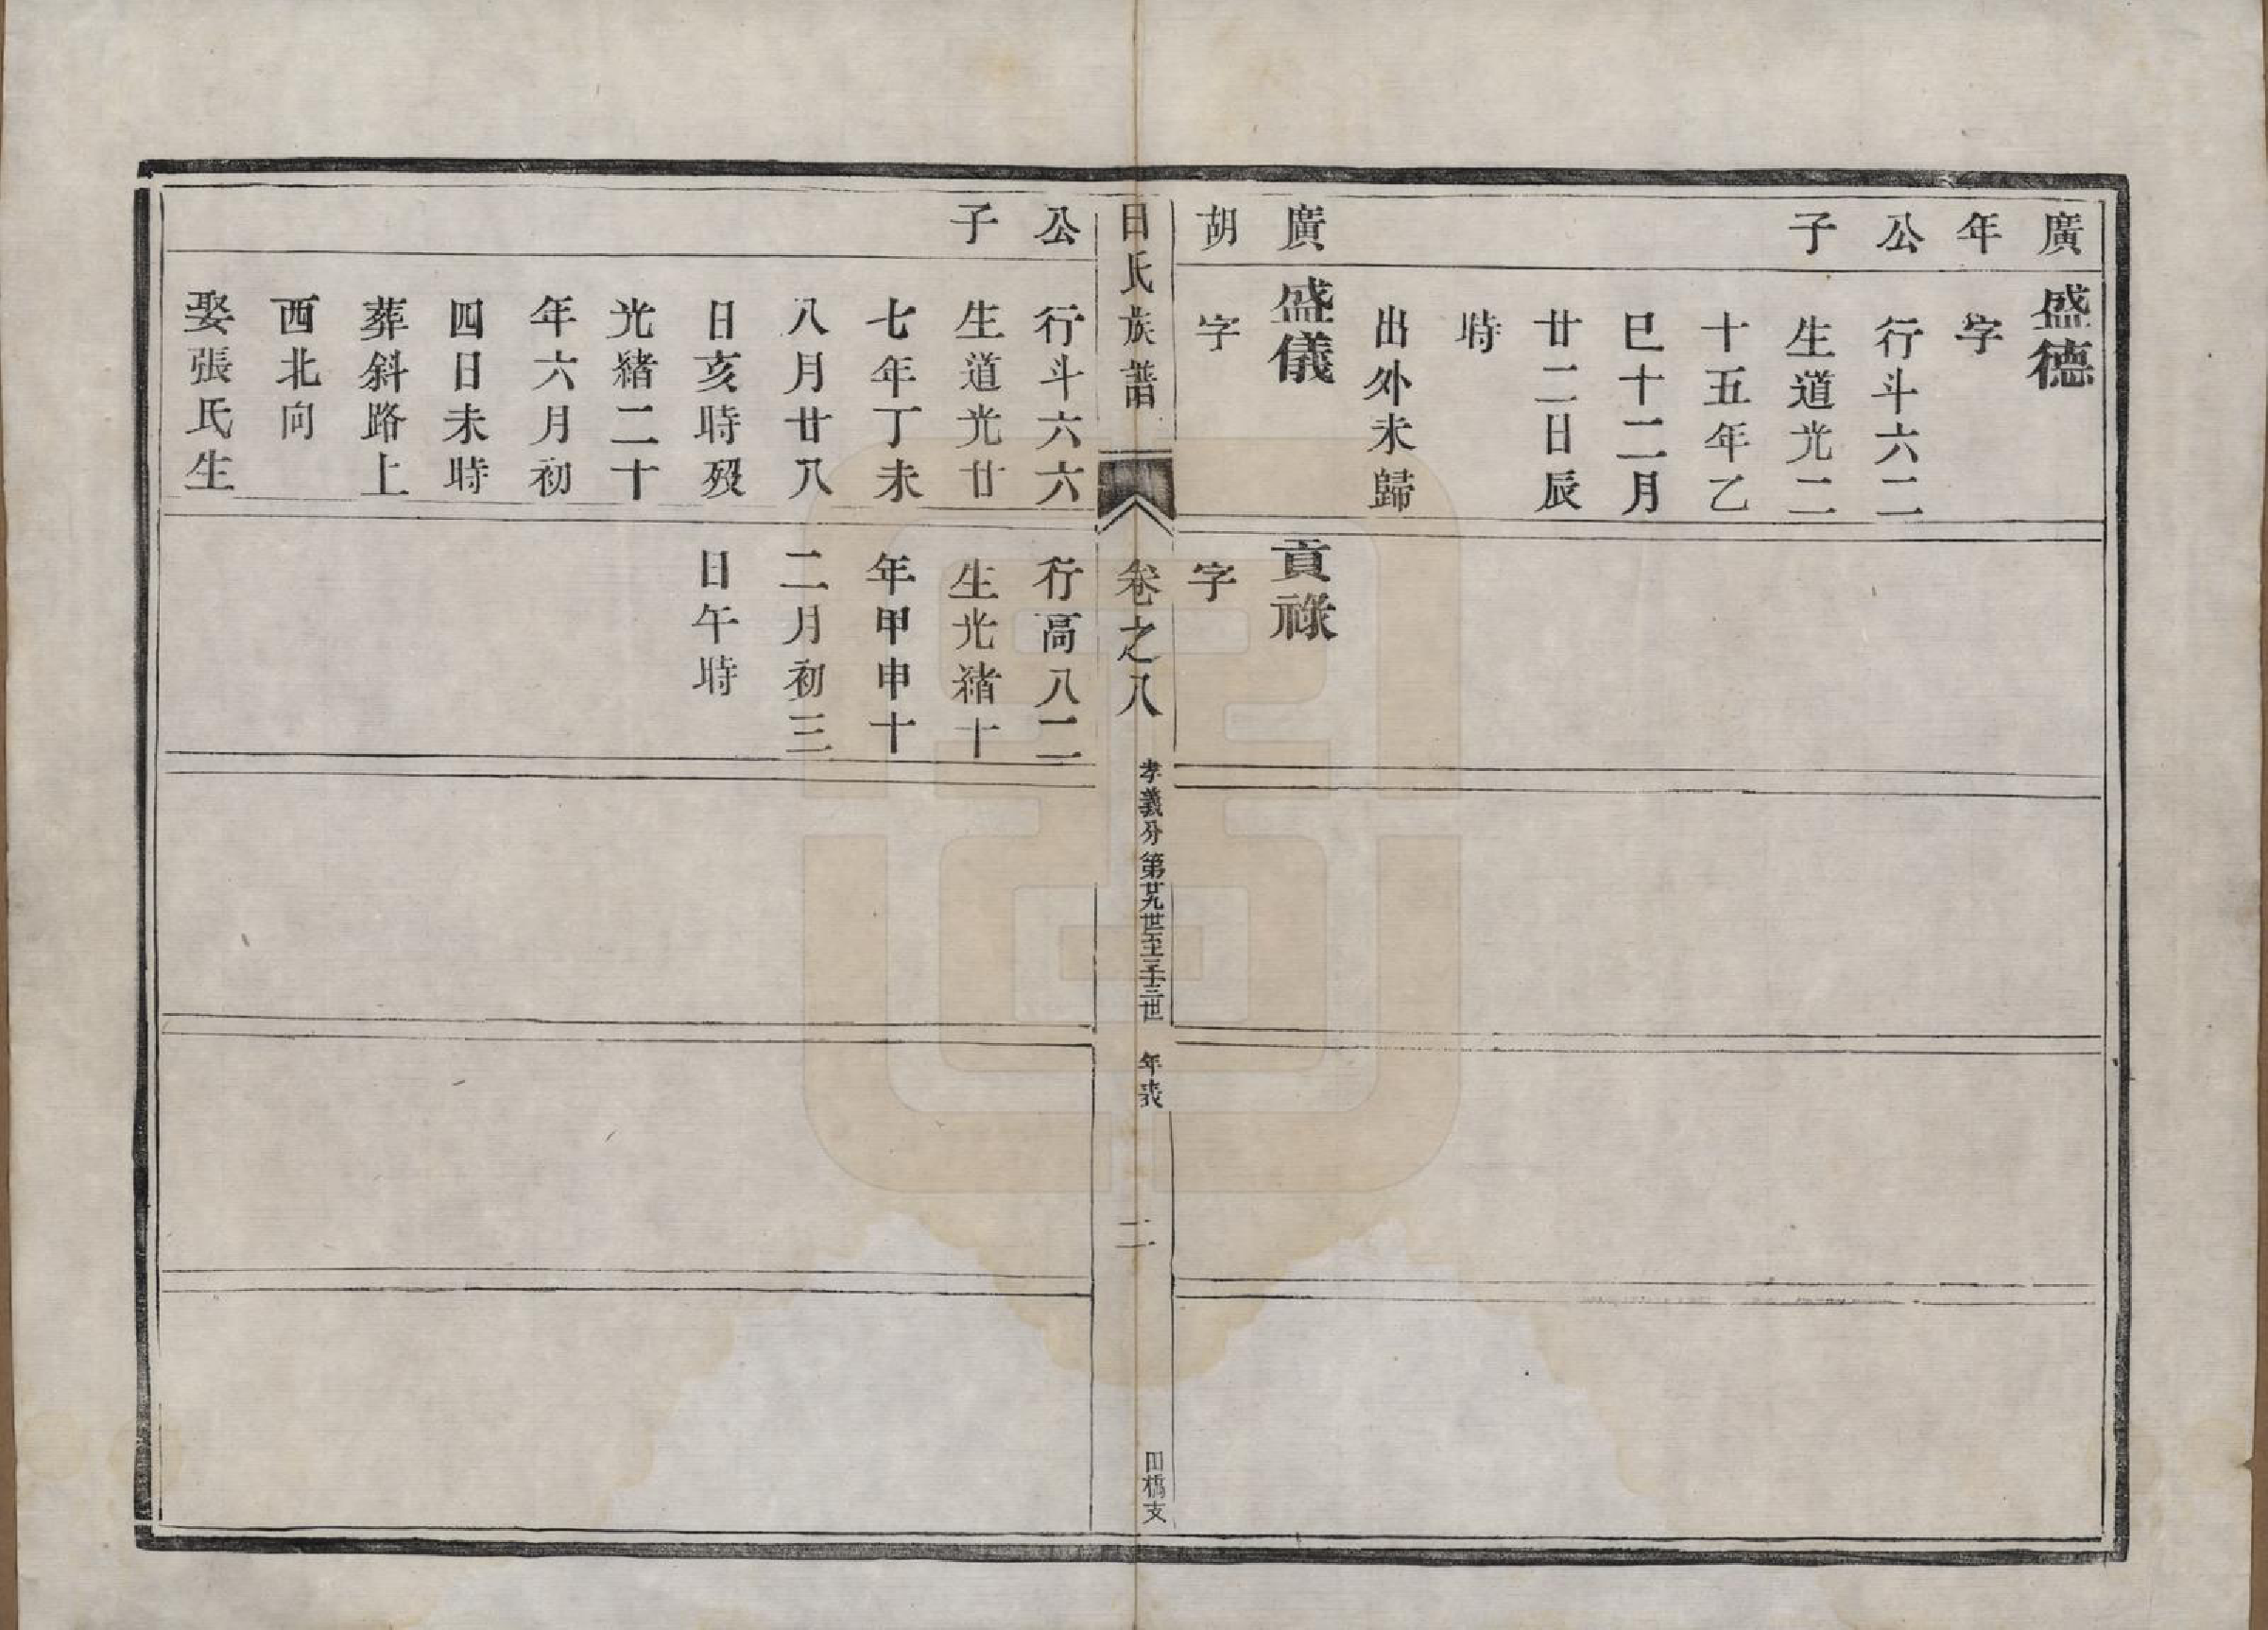 廣年公子
盛德
字
行斗六二
生道光二
十五年乙
巳十二月
廿二日辰
時
出外未歸
廣胡
盛儀
字
貢祿
字
田氏族譜
卷之八
孝義分第廿九世至三十三世
年表
二
田橋支
公子
行斗六六
生道光廿
七年丁未
八月廿八
日亥時歿
光緒二十
年六月初
四日未時
葬斜路上
西北向
娶張氏生
行高八二
生光緒十
年甲申十
二月初三
日午時